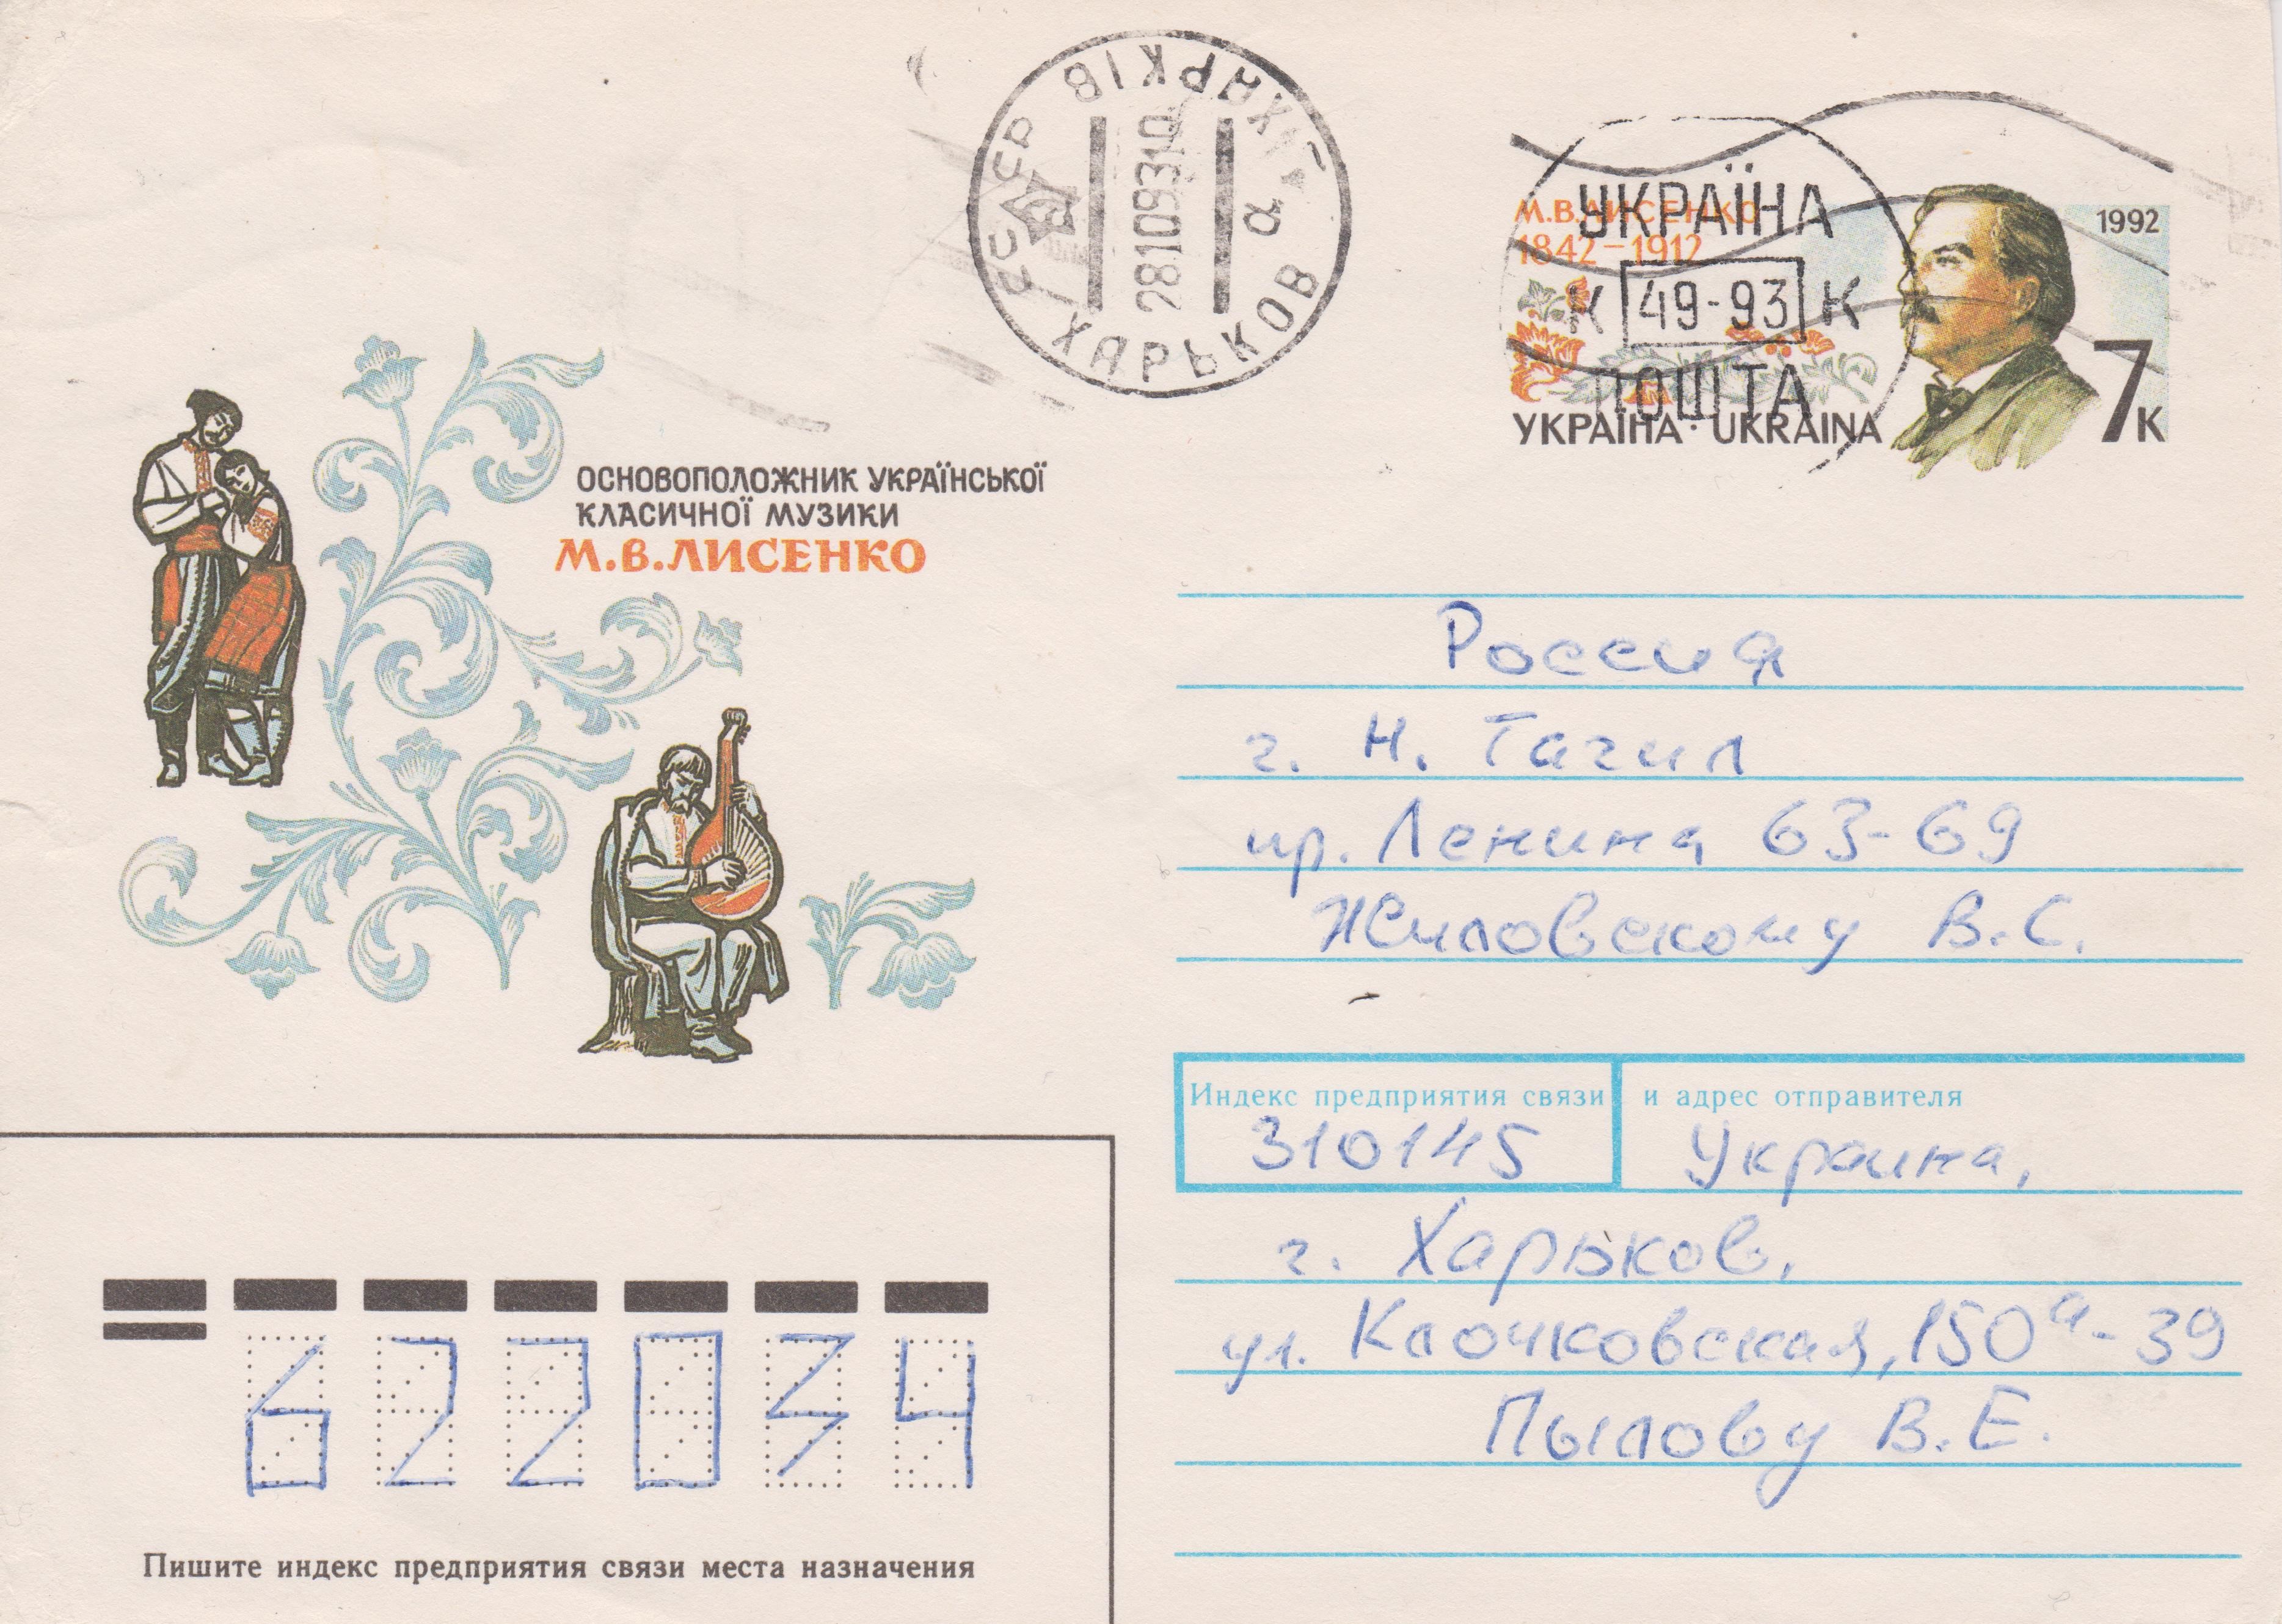 ХАРКІВ
РССР
28109310
а
ХАРЬКОВ
М.В.ЛИСЕНКО
1842-1912
1992
УКРАЇНА
К 49-93 К
ПОШТА
7к
УКРАЇНА·UKRAINA
ОСНОВОПОЛОЖНИК УКРАЇНСЬКОЇ
КЛАСИЧНОЇ МУЗИКИ
М.В.ЛИСЕНКО
Россия
г. Н. Тагил
пр. Ленина 63-69
Жиловскому В.С.
Индекс предприятия связи и адрес отправителя
310145 Украина,
г. Харьков,
ул. Клочковская, 150а-39
Пылову В.Е.
622034
Пишите индекс предприятия связи места назначения